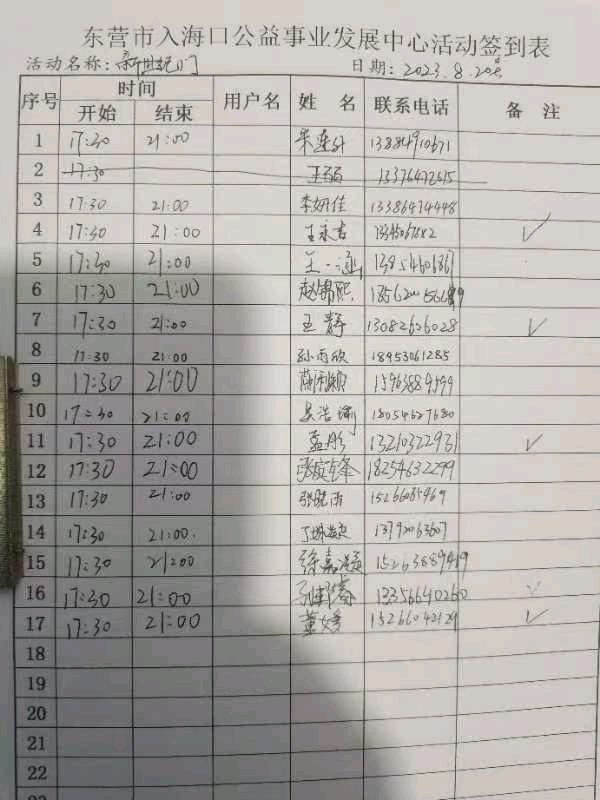 东营市入海口公益事业发展中心活动签到表
活动名称: 新世纪门 日期: 2023.8.20
序号 时间 用户名 姓 名 联系电话 备 注
开始 结束
1 17:30 21:00 13884910671
2 17:30 王 13376472615
3 17:30 21:00 李妍佳 13386474448
4 17:30 21:00 王永吉 ✓
5 17:30 21:00 王一涵
6 17:30 21:00 赵锦熙
7 17:30 21:00 王静 13082626028 ✓
8 17:30 21:00 孙雨欣 18953061285
9 17:30 21:00
10 17:30 21:00 吴浩瑜 18054627680
11 17:30 21:00 孟彤 13210322931 ✓
12 17:30 21:00 18254632299
13 17:30 21:00 张晓雨 15266085969
14 17:30 21:00. 13792063607
15 17:30 21:00 徐嘉凝
16 17:30 21:00 13356640260 ✓
17 17:30 21:00 董媛 15266042129 ✓
18
19
20
21
22
23